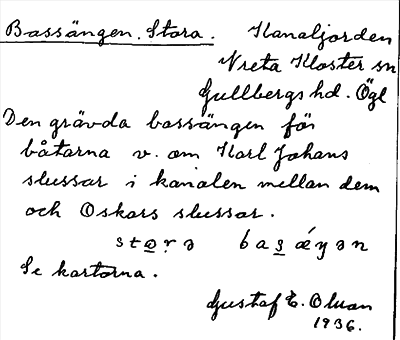 Bassängen, Stora. Kanaljorden
Vreta Kloster sn
Gullbergs hd. Ögl
Den grävda bassängen för
båtarna v. om Karl Johans
slussar i kanalen mellan dem
och Oskars slussar.
Se kartorna.
Gustaf E. Olsson
1936.